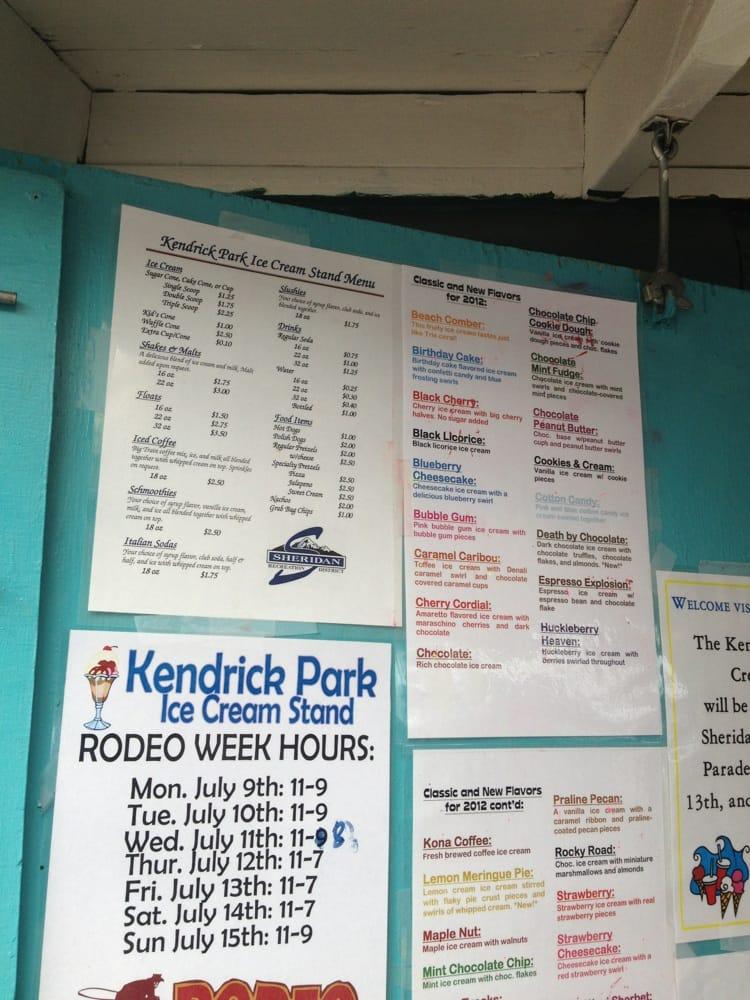 Kendrick Park Ice Cream Stand Menu
Ice Cream
Sugar Cone, Cake Cone, or Cup
Single Scoop $1.25
Double Scoop $1.75
Triple Scoop $2.25
Kid's Cone $1.00
Waffle Cone $2.50
Extra Cup/Cone $0.10
Shakes & Malts
A delicious blend of ice cream and milk. Malt
added upon request.
16 oz $1.75
22 oz $3.00
Floats
16 oz $1.50
22 oz $2.75
32 oz $3.50
Iced Coffee
Big Train coffee mix, ice, and milk all blended
together with whipped cream on top. Sprinkles
on request.
18 oz $2.50
Schmoothies
Your choice of syrup flavor, vanilla ice cream,
milk, and ice all blended together with whipped
cream on top.
18 oz $2.50
Italian Sodas
Your choice of syrup flavor, club soda, half &
half, and ice with whipped cream on top.
18 oz $1.75
Slushies
Your choice of syrup flavor, club soda, and ice
blended together.
18 oz $1.75
Drinks
Regular Soda
16 oz $0.75
22 oz $1.00
32 oz $1.25
Water
16 oz $0.25
22 oz $0.30
32 oz $0.40
Bottled $1.00
Food Items
Hot Dogs $1.00
Polish Dogs $2.00
Regular Pretzels $2.00
w/cheese $2.50
Specialty Pretzels
Pizza $2.50
Jalapeno $2.50
Sweet Cream $2.50
Nachos $2.00
Grab Bag Chips $1.00
SHERIDAN
RECREATION DISTRICT
Classic and New Flavors
for 2012:
Beach Comber:
This fruity ice cream tastes just
like Trix ceral!
Birthday Cake:
Birthday cake flavored ice cream
with confetti candy and blue
frosting swirls
Black Cherry:
Cherry ice cream with big cherry
halves. No sugar added
Black Licorice:
Black licorice ice cream
Blueberry
Cheesecake:
Cheesecake ice cream with a
delicious blueberry swirl
Bubble Gum:
Pink bubble gum ice cream with
bubble gum pieces
Caramel Caribou:
Toffee ice cream with Denali
caramel swirl and chocolate
covered caramel cups
Cherry Cordial:
Amaretto flavored ice cream with
maraschino cherries and dark
chocolate
Chocolate:
Rich chocolate ice cream
Chocolate Chip
Cookie Dough:
Vanilla ice cream with cookie
dough pieces and choc. flakes
Chocolate
Mint Fudge:
Chocolate ice cream with mint
swirls and chocolate-covered
mint pieces
Chocolate
Peanut Butter:
Choc. base w/peanut butter
cups and peanut butter swirls
Cookies & Cream:
Vanilla ice cream w/ cookie
pieces
Cotton Candy:
Pink and blue cotton candy ice
cream swirled together
Death by Chocolate:
Dark chocolate ice cream with
chocolate truffles, chocolate
flakes, and almonds. "New!"
Espresso Explosion:
Espresso ice cream w/
espresso bean and chocolate
flake
Huckleberry
Heaven:
Huckleberry ice cream with
berries swirled throughout
Kendrick Park
Ice Cream Stand
RODEO WEEK HOURS:
Mon. July 9th: 11-9
Tue. July 10th: 11-9
Wed. July 11th: 11-9 8
Thur. July 12th: 11-7
Fri. July 13th: 11-7
Sat. July 14th: 11-7
Sun July 15th: 11-9
RODEO
Classic and New Flavors
for 2012 cont'd:
Kona Coffee:
Fresh brewed coffee ice cream
Lemon Meringue Pie:
Lemon cream ice cream stirred
with flaky pie crust pieces and
swirls of whipped cream. "New!"
Maple Nut:
Maple ice cream with walnuts
Mint Chocolate Chip:
Mint ice cream with choc. flakes
Praline Pecan:
A vanilla ice cream with a
caramel ribbon and praline-
coated pecan pieces
Rocky Road:
Choc. ice cream with miniature
marshmallows and almonds
Strawberry:
Strawberry ice cream with real
strawberry pieces
Strawberry
Cheesecake:
Cheesecake ice cream with a
red strawberry swirl
Sherbet:
WELCOME VIS
The Ken
Cre
will be
Sherida
Parade
13th, and